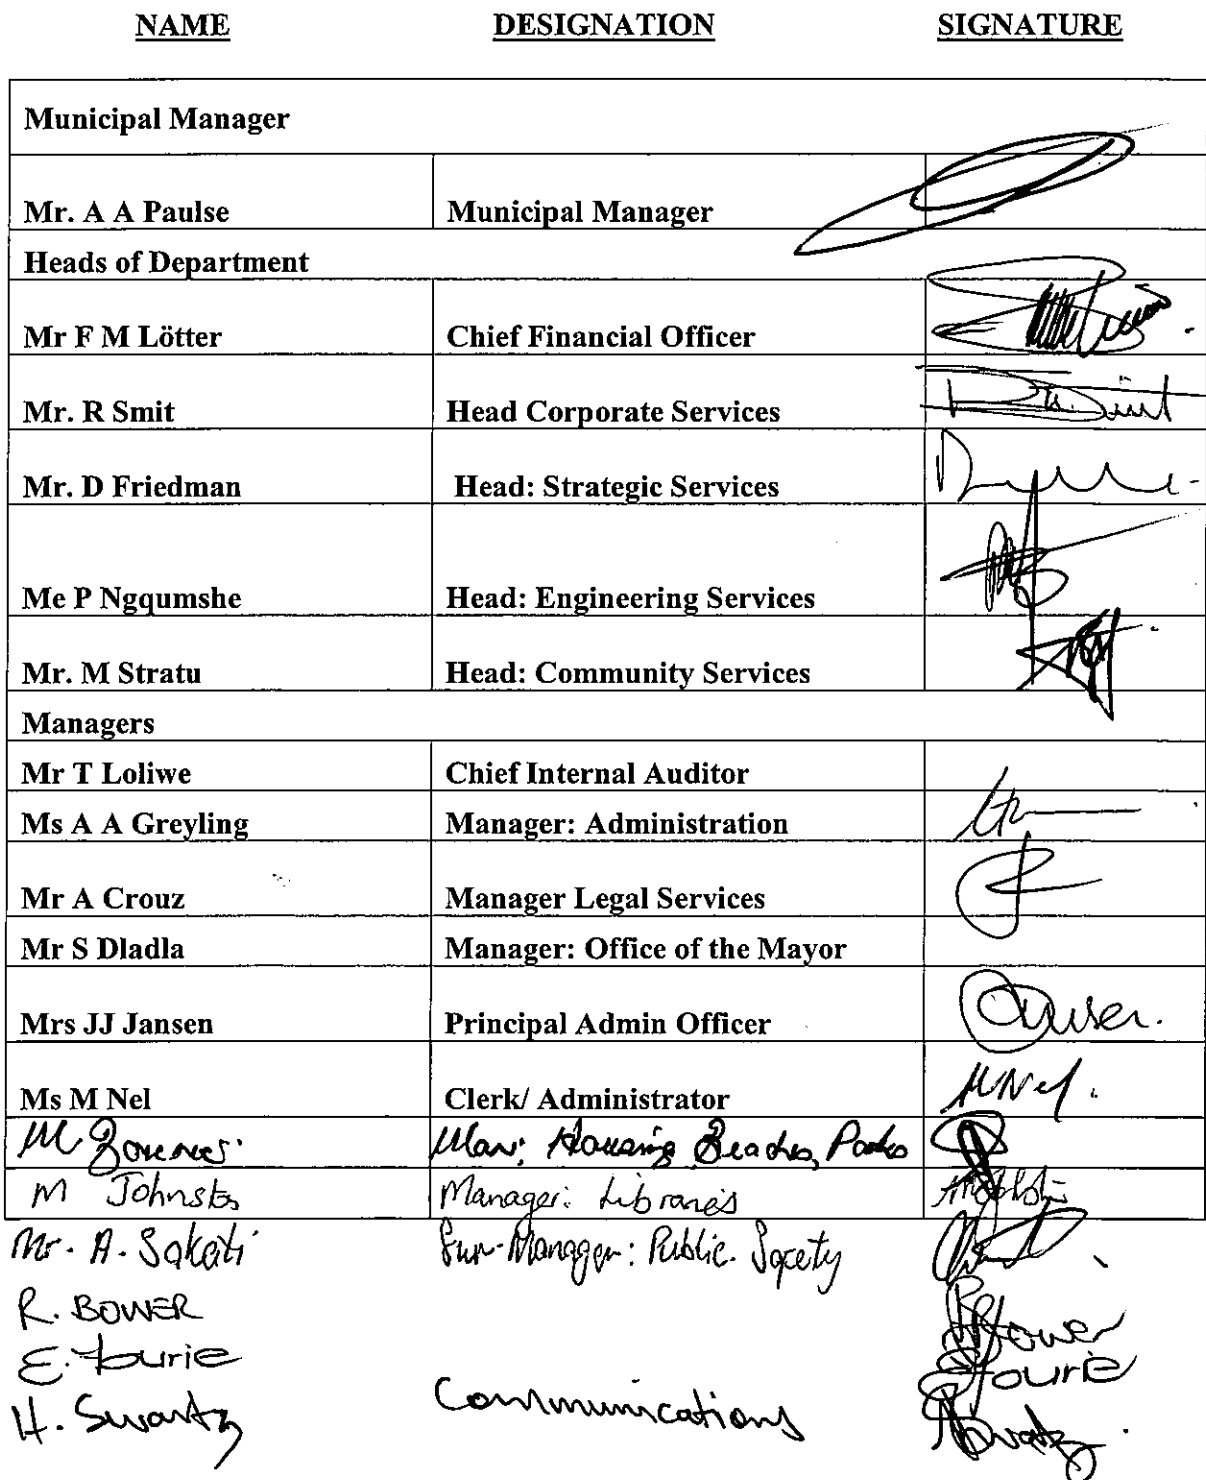 NAME DESIGNATION SIGNATURE
Municipal Manager
Mr. A A Paulse Municipal Manager
Heads of Department
Mr F M Lötter Chief Financial Officer
Mr. R Smit Head Corporate Services
Mr. D Friedman Head: Strategic Services
Me P Ngqumshe Head: Engineering Services
Mr. M Stratu Head: Community Services
Managers
Mr T Loliwe Chief Internal Auditor
Ms A A Greyling Manager: Administration
Mr A Crouz Manager Legal Services
Mr S Dladla Manager: Office of the Mayor
Mrs JJ Jansen Principal Admin Officer
Ms M Nel Clerk/ Administrator MNel.
M Man: Housing Beaches, Parks
M Manager: Libraries
Mr. A. Sakati Manager: Public
R. BOWER RBower
E. Fourie EFourie
H. Swartz Communications HSwartz